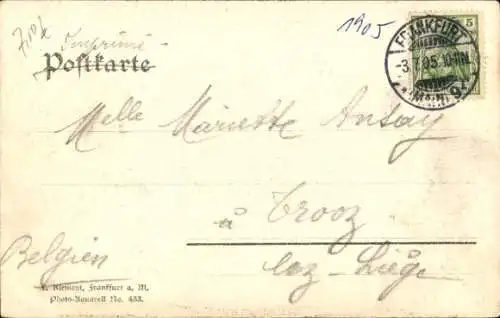 1905
Imprimé
Postkarte
FRANKFURT
-3.7.05.10-11N.
* (MAIN) 9
5
Melle Mariette Ansay
à Trooz
lez-Liège
Belgien
Klement, Frankfurt a. M.
Photo-Aquarell No. 453.